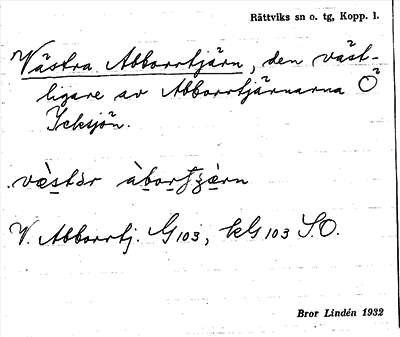 Rättviks sn o. tg, Kopp. l.
Västra Abborrtjärn, den väst-
ligare av Abborrtjärnarna Ö
Icksjön.
V. Abborrtj. G103, kG103 S.O.
Bror Lindén 1932